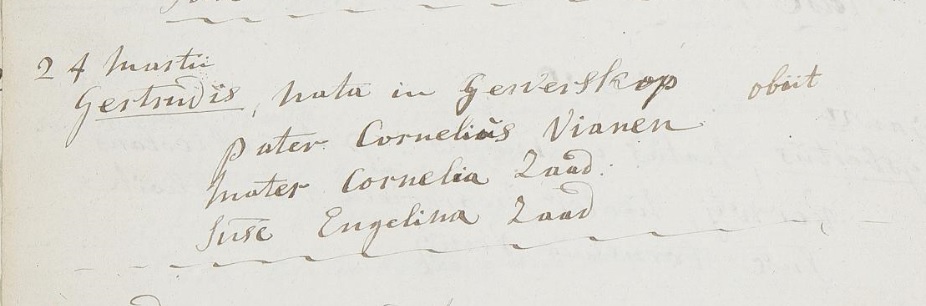 24 Martii
Gertrudis, nata in Gerverskop obiit
pater Cornelius Vianen
mater Cornelia Zaad.
Susc Engelina Zaad